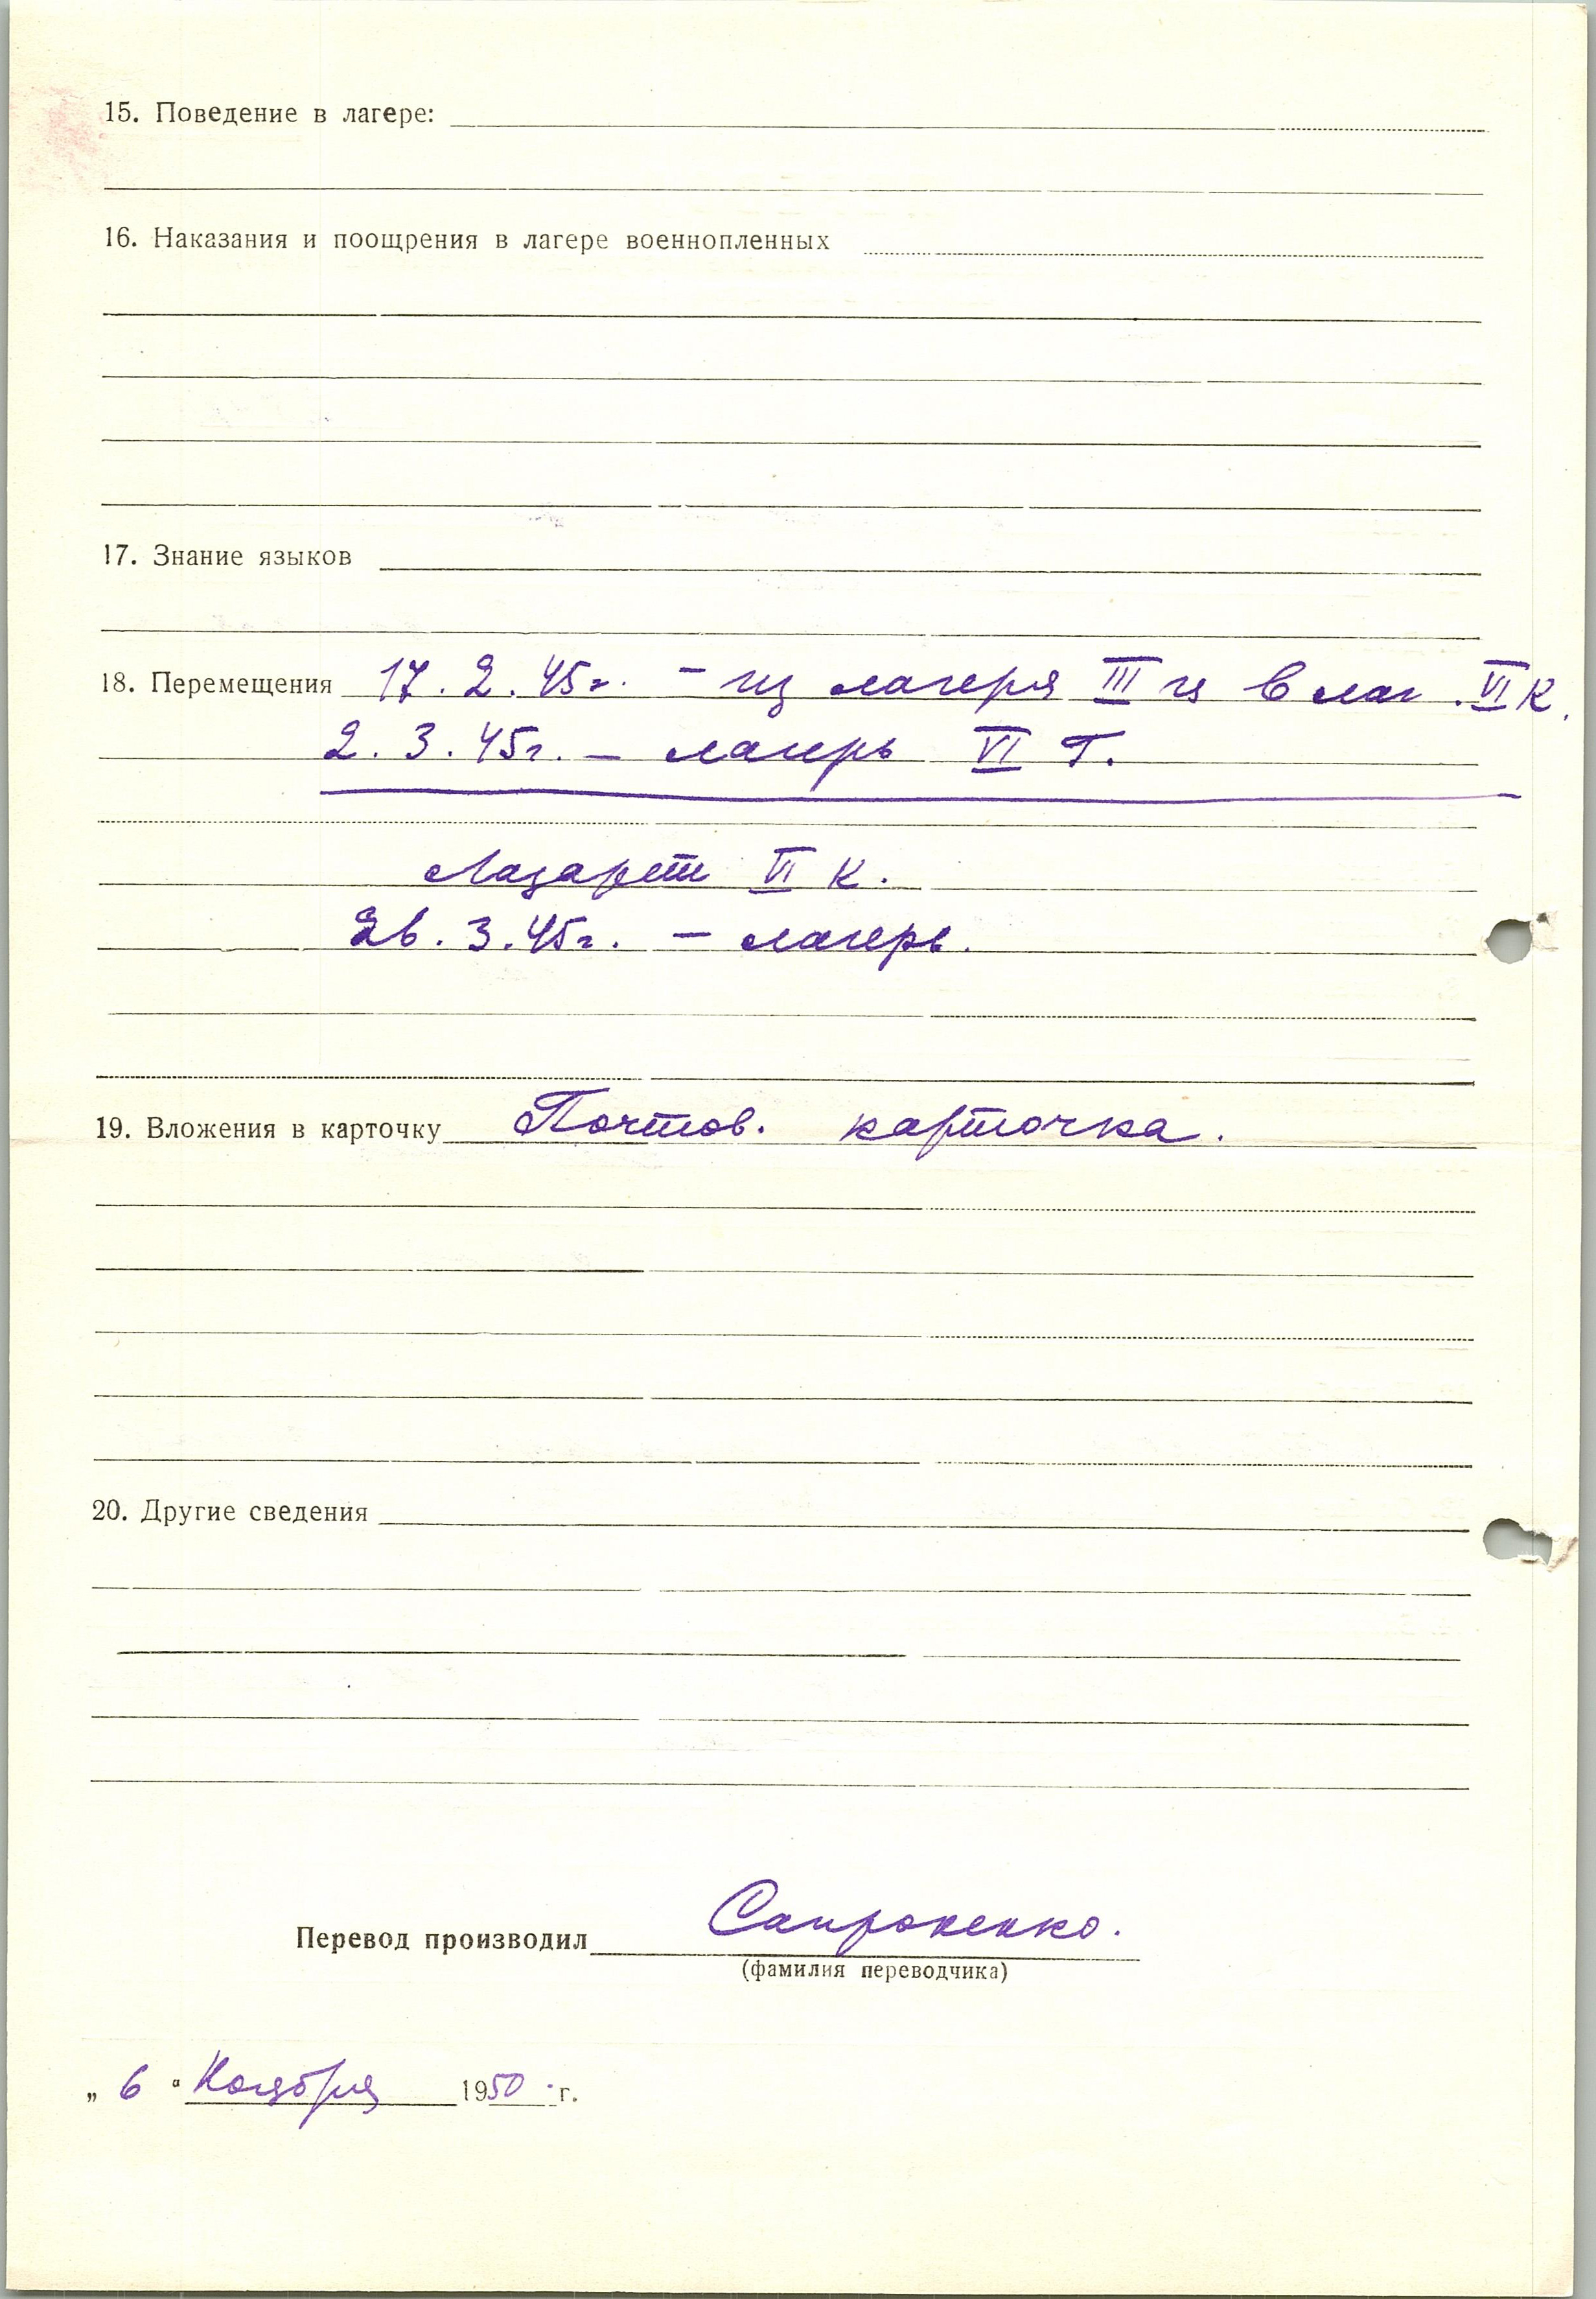 15. Поведение в лагере:
16. Наказания и поощрения в лагере военнопленных
17. Знание языков
18. Перемещения 17. 2. 45г. – из лагеря III в лаг. VI К.
2. 3. 45г. – лагерь VI Г.
Лазарет VI К.
26. 3. 45г. – лагерь.
19. Вложения в карточку Почтов. карточка.
20. Другие сведения
Перевод производил Сапроненко.
(фамилия переводчика)
„ 6 “ Ноября 1950 г.